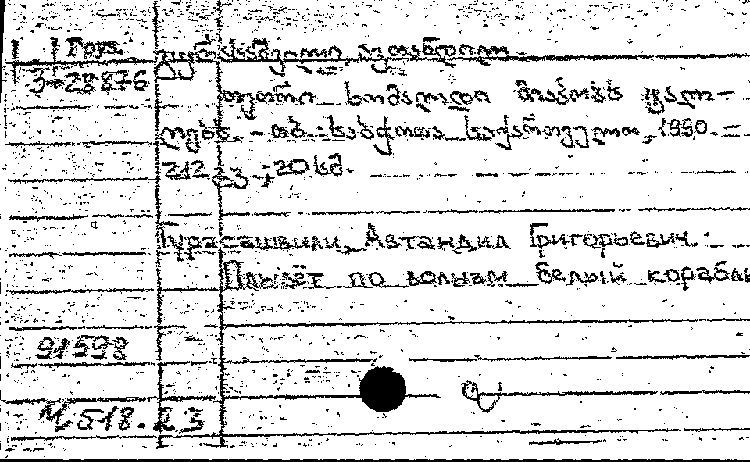 Груз.
გურასაშვილი, ავთანდილ.
3-28876
თეთრი ხომალდი მიაპობს ტალ-
ღებს. - თბ.: საბჭოთა საქართველო, 1990. -
212 გვ.; 20 სმ.
Гурасашвили, Автандил Григорьевич.
Плывёт по волнам белый корабль
91598
М518.23